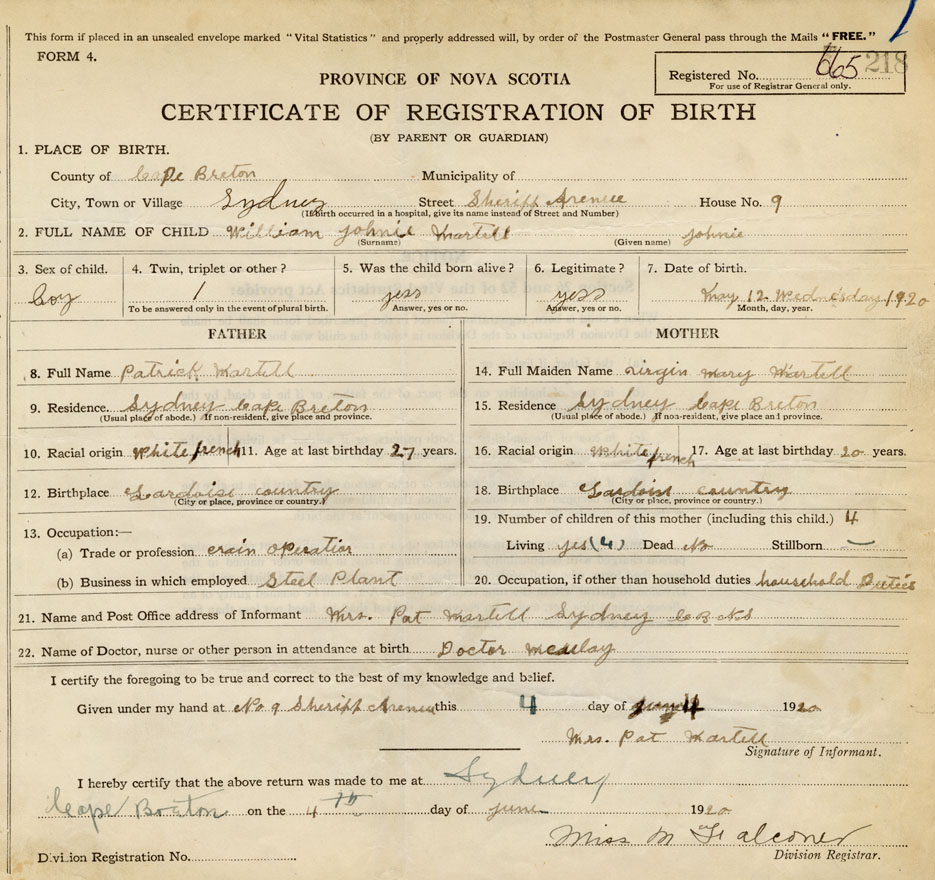 This form if placed in an unsealed envelope marked "Vital Statistics" and properly addressed will, by order of the Postmaster General pass through the Mails "FREE."
FORM 4.
Registered No. 665 218
For use of Registrar General only.
PROVINCE OF NOVA SCOTIA
CERTIFICATE OF REGISTRATION OF BIRTH
(BY PARENT OR GUARDIAN)
1. PLACE OF BIRTH.
County of Cape Breton Municipality of
City, Town or Village Sydney Street Sheriff Avenue House No. 9
(If birth occurred in a hospital, give its name instead of Street and Number)
2. FULL NAME OF CHILD William Johnie Martell Johnie
(Surname) (Given name)
3. Sex of child. 4. Twin, triplet or other? 5. Was the child born alive? 6. Legitimate? 7. Date of birth.
boy 1 yess yess May 12 Wednesday 1920
To be answered only in the event of plural birth. Answer, yes or no. Answer, yes or no. Month, day, year.
FATHER MOTHER
8. Full Name Patrick Martell 14. Full Maiden Name Virgin Mary Martell
9. Residence Sydney Cape Breton 15. Residence Sydney Cape Breton
(Usual place of abode.) If non-resident, give place and province. (Usual place of abode.) If non-resident, give place and province.
10. Racial origin White french 11. Age at last birthday 27 years. 16. Racial origin White french 17. Age at last birthday 20 years.
12. Birthplace country 18. Birthplace country
(City or place, province or country.) (City or place, province or country.)
13. Occupation:— 19. Number of children of this mother (including this child.) 4
(a) Trade or profession crain operatior Living yes (4) Dead No Stillborn —
(b) Business in which employed Steel Plant 20. Occupation, if other than household duties household Duties
21. Name and Post Office address of Informant Mrs. Pat Martell Sydney CBNS
22. Name of Doctor, nurse or other person in attendance at birth Doctor
I certify the foregoing to be true and correct to the best of my knowledge and belief.
Given under my hand at No 9 Sheriff Avenue this 4 day of 1920
Mrs. Pat Martell
Signature of Informant.
I hereby certify that the above return was made to me at Sydney
Cape Breton on the 4th day of june 1920
Miss M Falconer
Division Registrar.
Division Registration No.